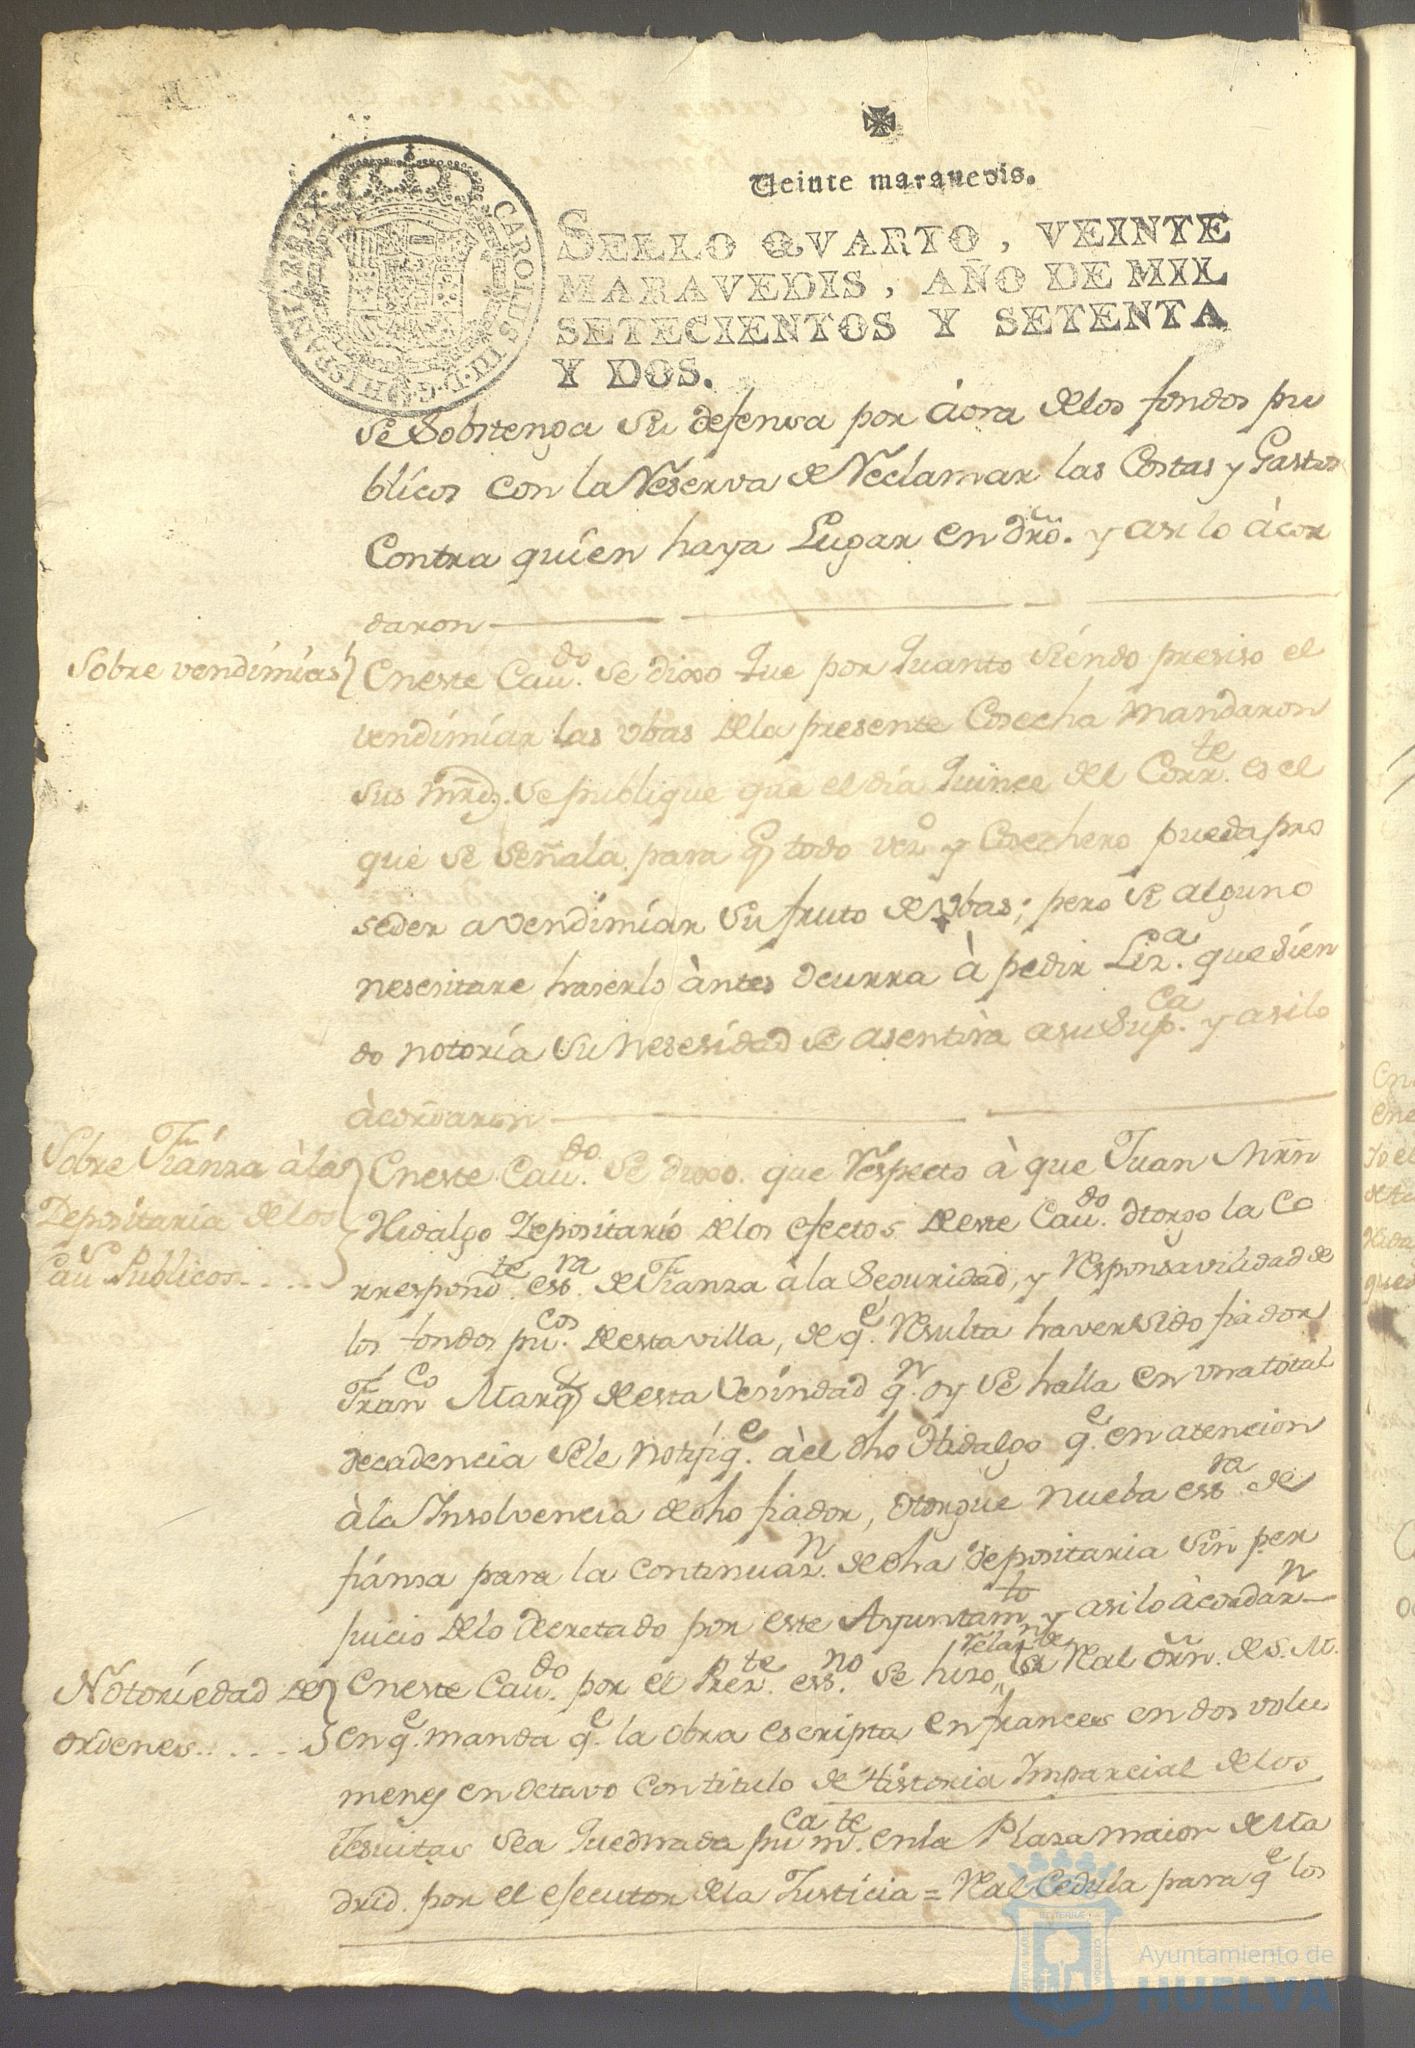 Veinte maravedis.
SELLO QVARTO, VEINTE
MARAVEDIS, AÑO DE MIL
SETECIENTOS Y SETENTA
Y DOS.
CAROLUS III. D. G. HISPANIAR. REX
se Sobstenga su defensa por àora delos fondos pu
blicos con la Reserva de Reclamar las Costas y Gastos
Contra quien haya Lugar en dro. y asi lo àcor
daron
Sobre vendimias
Eneste Cau.do se dixo que por quanto siendo presiso el
vendimiar las vbas dela presente Cosecha mandaron
sus mrds. se publique que el dia quince del Corr.te es el
que se señala para q todo veo. y Cosechero pueda pro
seder a vendimiar su fruto de vbas; pero si alguno
nesesitare haserlo àntes ocurra à pedir Liz.a que sien
do notoria su nesesidad se asentirà asu Sup.ca y asi lo
àcordaron
Sobre Fianza à la
Depositaria de los
Cau.s Publicos....
Eneste Cau.do se dixo. que Respecto à que Juan Mrñ
Hidalgo Depositario delos efectos deste Cau.do otorgo la Co
rrespond.te ess.ra de Fianza à la Seguridad, y Responsavilidad de
los fondos pu.cos desta villa, de q.e Resulta haver sido fiador
Fran.co Marqz desta Vesindad q.n oy se halla en vna total
decadencia sele notifiq.e àel dho Hidalgo q.e en atencion
à la Insolvencia de dho fiador, otorgue nueba ess.ra de
fiansa para la continuaz.n de dha depositaria sin per
juicio delo decretado por este Ayuntam.to y asi lo àcordar.n
Notoriedad de
ordenes.....
Eneste Cau.do por el Prez.te ess.no se hizo relaz.n de Real orñ. de S. M.
en q.e manda q.e la obra escripta en frances en dos volu
menes en octavo con titulo de Historia Imparcial delos
Jesuitas sea quemada pu.ca m.te en la Plaza maior de Ma
drid. por el efecutor dela Justicia = Real Cedula para q.e los
Ayuntamiento de
HUELVA